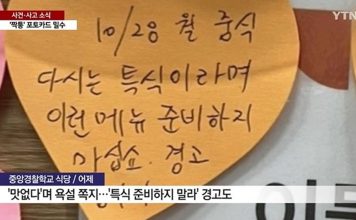 사건·사고 소식
'짝퉁' 포토카드 밀수
YTN
10/28 월 중식
다시는 특식이라며
이런 메뉴 준비하지
마십쇼. 경고
중앙경찰학교 식당 / 어제
'맛없다'며 욕설 쪽지…'특식 준비하지 말라' 경고도